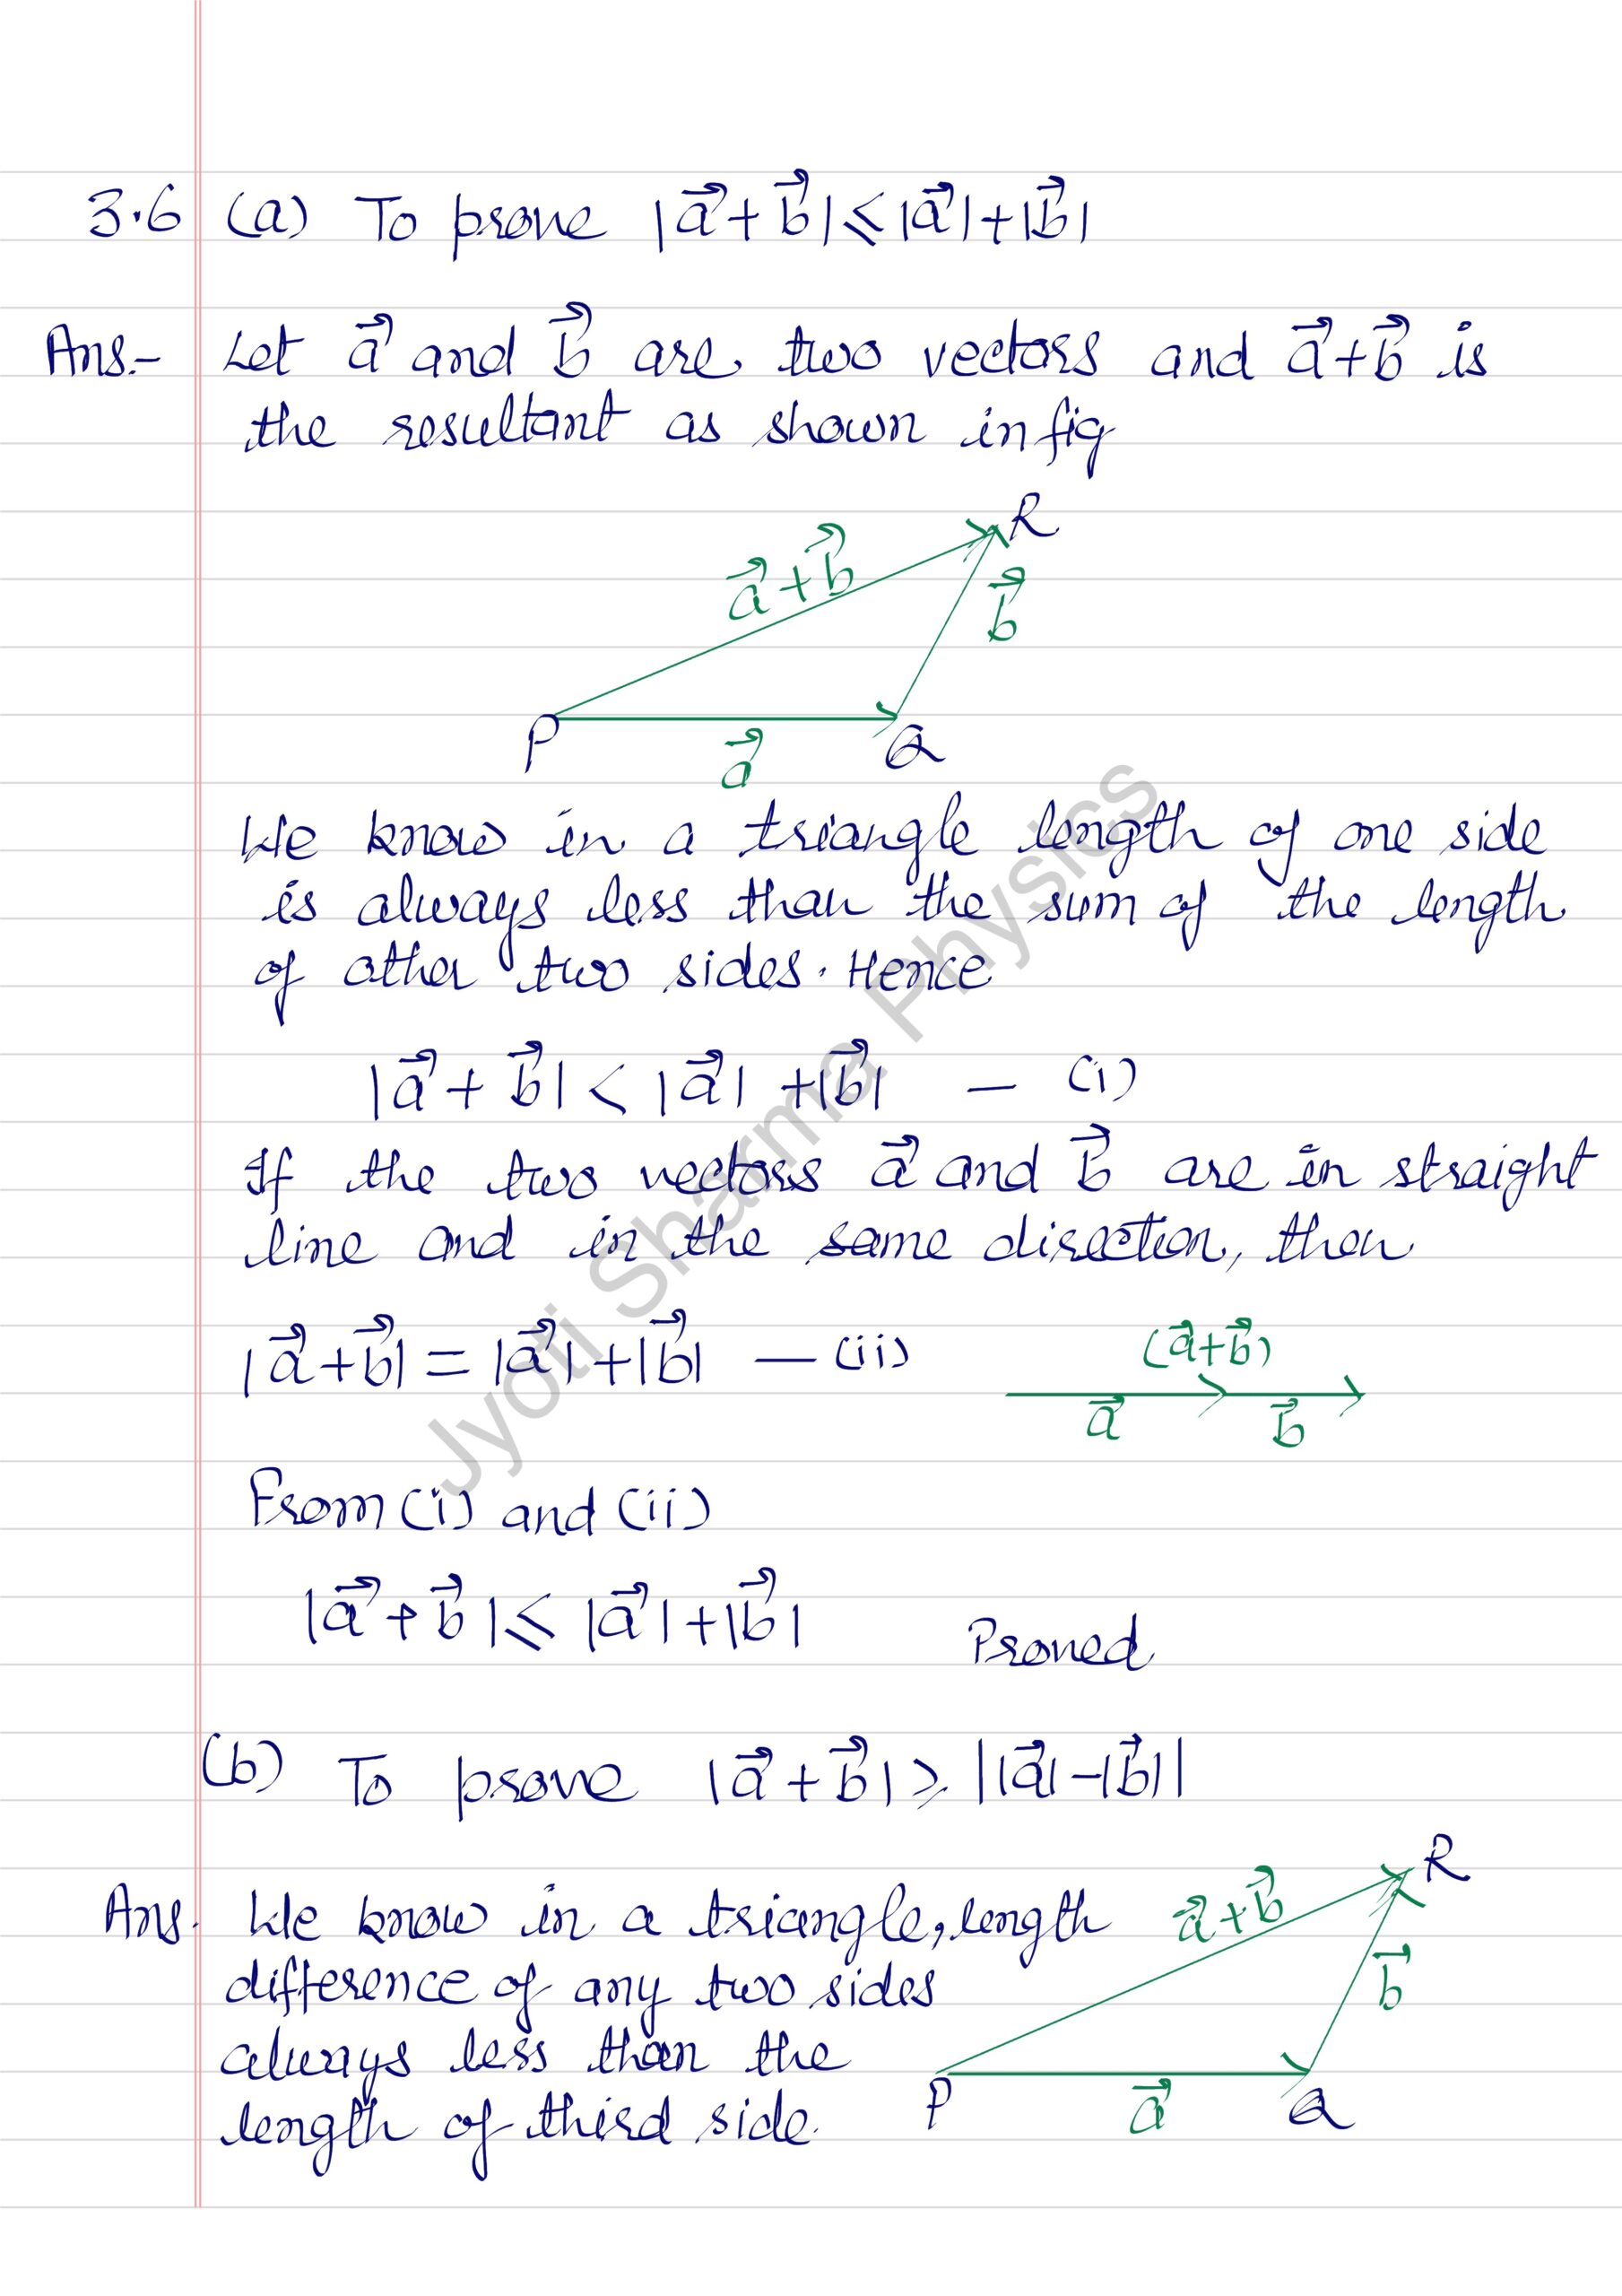 3.6 (a) To prove |a⃗+b⃗|≤|a⃗|+|b⃗|
Ans:- Let a⃗ and b⃗ are two vectors and a⃗+b⃗ is
the resultant as shown in fig
R
a⃗+b⃗
b⃗
P
Q
a⃗
We know in a triangle length of one side
is always less than the sum of the length
of other two sides. Hence
|a⃗+b⃗| < |a⃗| +|b⃗| — (i)
If the two vectors a⃗ and b⃗ are in straight
line and in the same direction, then
|a⃗+b⃗| = |a⃗|+|b⃗| — (ii)
(a⃗+b⃗)
a⃗ b⃗
From (i) and (ii)
|a⃗+b⃗|≤ |a⃗|+|b⃗|
Proved
(b) To prove |a⃗+b⃗| ≥ ||a⃗|-|b⃗||
Ans. We know in a triangle, length
difference of any two sides
always less than the
length of third side.
R
a⃗+b⃗
b⃗
P
a⃗
Q
Jyoti Sharma Physics